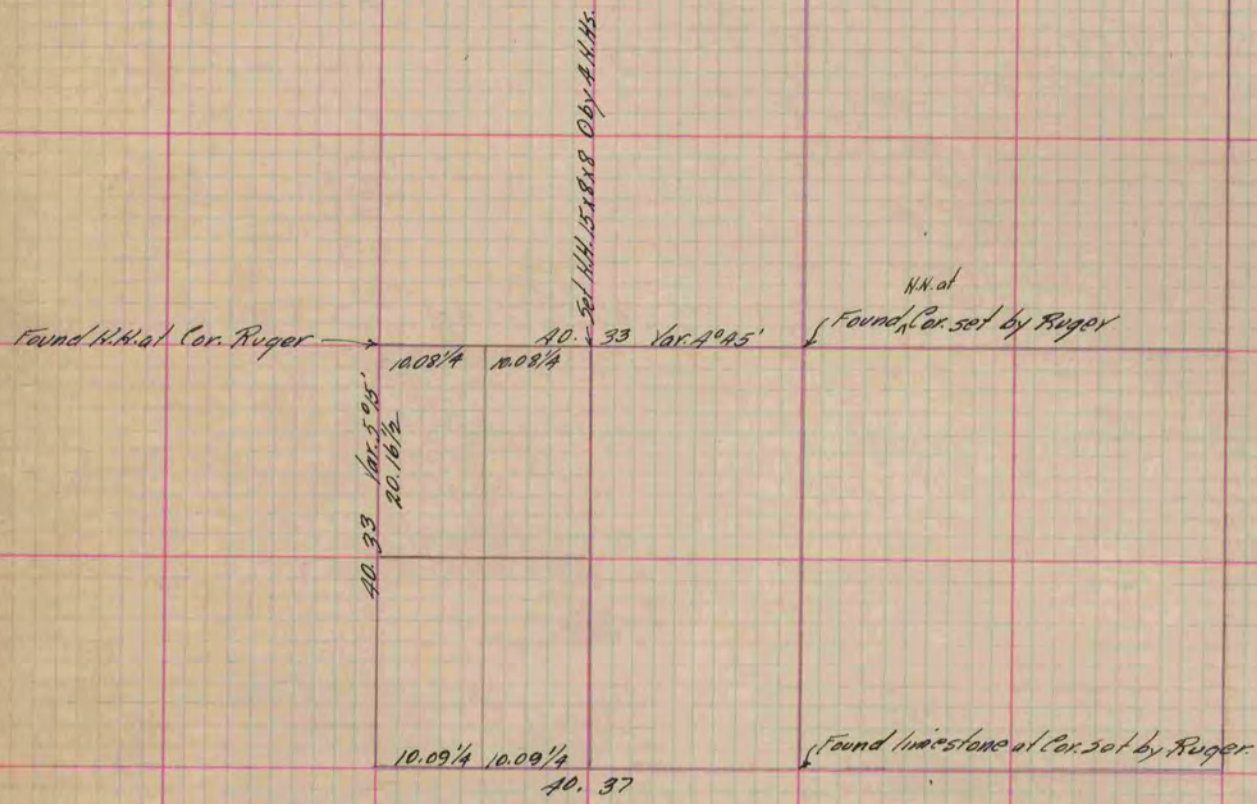 Set H.H. 15x8x8 O by A.H.Hs.
H.H. at
Found H.H. at Cor. Ruger
40. 33 Var. 4°45'
Found ^ Cor. set by Ruger
10.08 1/4 10.08 1/4
40. 33 Var. 5°15'
20.16 1/2
10.09 1/4 10.09 1/4
Found limestone at Cor. set by Ruger.
40. 37